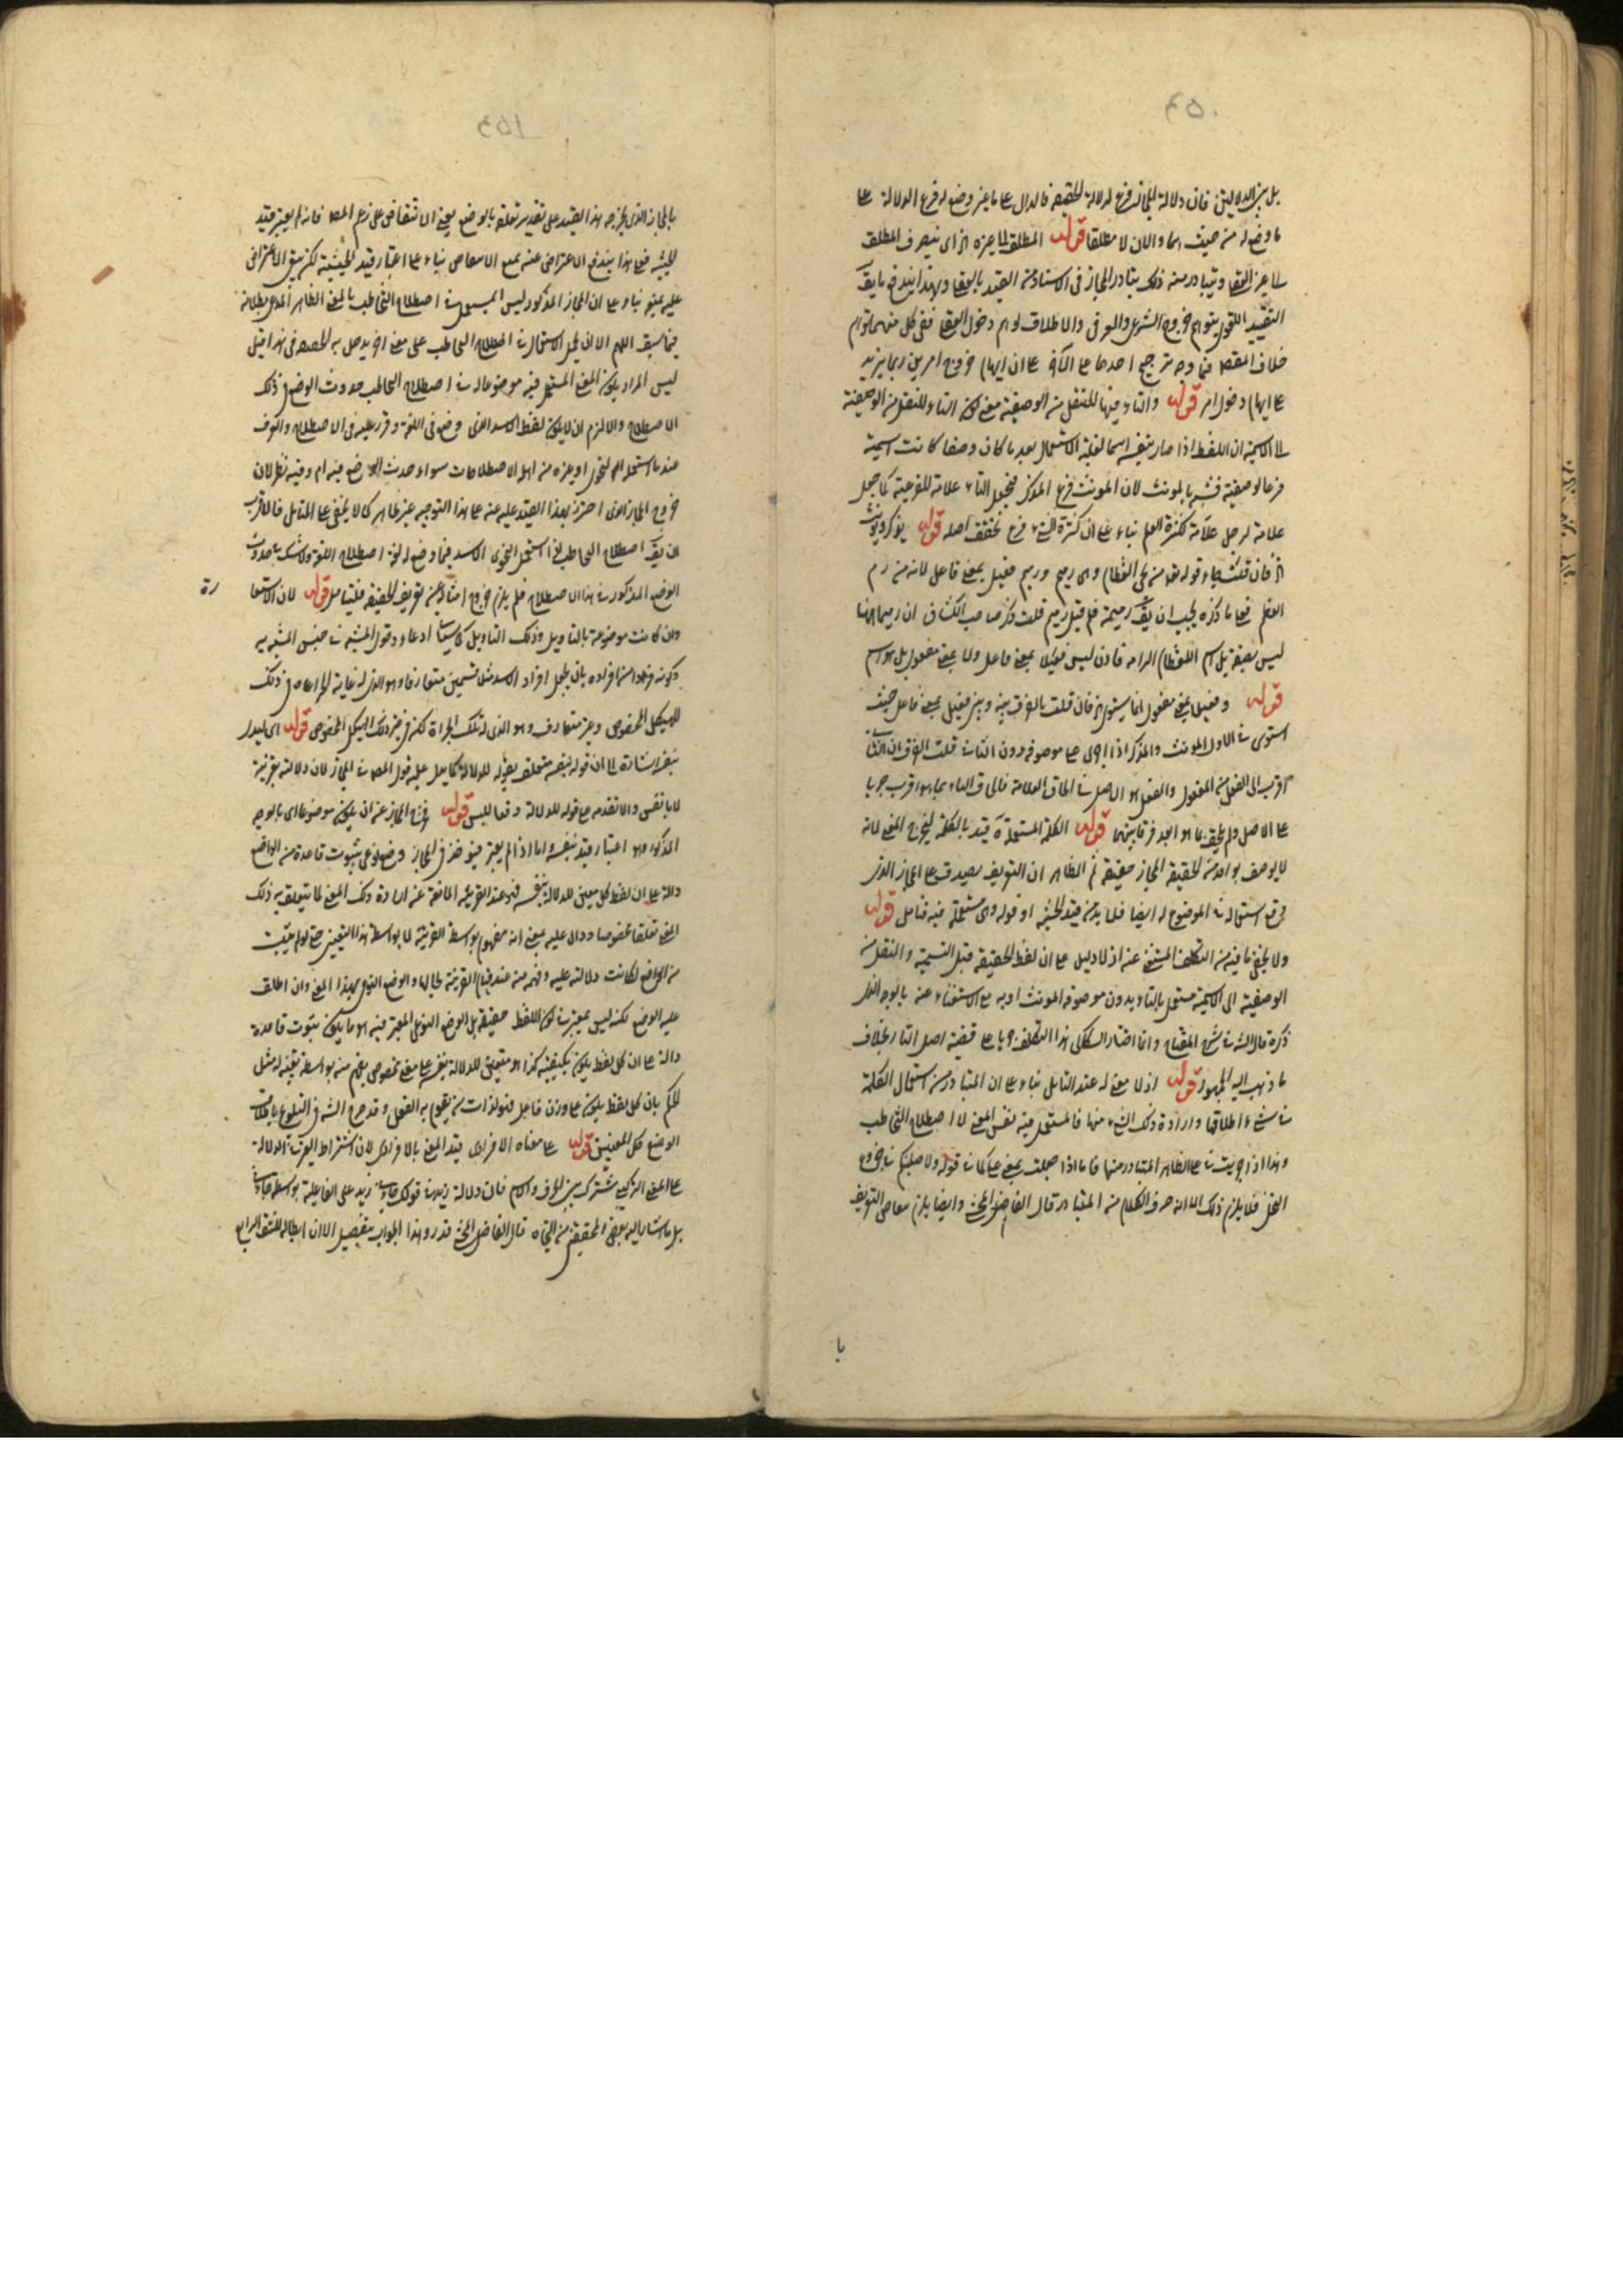 بل بين الدلالتين فان دلالة المجاز فرع لدلالة الحقيقة فالدال على ما غير وضع له فرع الدلالة على
ما وضع له من حيث هما والان لا مطلقا قوله المطلق لما عيره از اى ينصرف المطلق
الى غير العقلى ويتبادر منه ذلك يتبادر المجاز فى الاسناد من المقيد بالعقلى وبهذا يندفع ما يق
التقييد اللغوى يتوهم خروج الشرعى والعرفى والاطلاق لوهم دخول العقلى ففى كل منهما توهم
خلاف المقصد فما وجه ترجيح احدهما على الآخر على ان ايهام خروج امرين ربما يزيد
على ايهام دخول امر قوله والتاء فيها للنقل من الوصفية معنى كون التاء للنقل من الوصفية
الى الاسمية ان اللفظ اذا صار بنفسه اسما لغلبة الاستعمال بعد ما كان وصفا كانت اسميته
فرعا لوصفيته فشبه بالمونث لان المونث فرع المذكر فتجعل التاء علامة للفرعية كما جعل
علامة لرجل علامة لكثرة العلم بناء على ان كثرة الشئ فرع تحقق اصله قوله يذكر ويونث
از فان قلت جاء قوله تعالى من يحى العظام وهى رميم ورميم فعيل بمعنى فاعل لانه من رم
العظم فعلى ما ذكره يجب ان يق رميمة فلم قيل رميم قلت ذكر صاحب الكشاف ان رميما ههنا
ليس بصفة بل اسم للعظام الرامه فاذن ليس فعيلا بمعنى فاعل ولا بمعنى مفعول بل هو اسم
قوله وفعيل بمعنى مفعول انما يستوى از فان قلت ما الفرق بينه وبين فعيل بمعنى فاعل حيث
استوى فى الاول المونث والمذكر اذا اجرى على موصوفه دون الثانى قلت الفرق ان الثانى
اقرب الى الفعل من المفعول والفعل هو الاصل فى الحاق العلامة فالحاق التاء بما هو اقرب جريا
على الاصل ولم يلحق بما هو ابعد فرقا بينهما قوله الكلمة المستعملة آه قيد بالكلمة ليخرج المعنى لانه
لا يوصف بواحد من الحقيقة والمجاز حقيقة ثم الظاهر ان التعريف يصدق على المجاز الذى
وقع استعماله فى الموضوع له ايضا فلا بد من قيد الحيثية او قوله وهى مستعملة فيه فتامل قوله
ولا يخفى ما فيه من التكلف المستغنى عنه اذ لا دليل على ان لفظ الحقيقة قبل التسمية والنقل من
الوصفية الى الاسمية مستعمل بالتاء بدون موصوفه المونث او به مع الاستغناء عنه بالوجه الذى
ذكره قال الش فى شرح المفتاح وانما اختار السكاكى هذا التكلف جريا على قضية اصل التاء بخلاف
ما ذهب اليه الجمهور قوله اذ لا معنى له عند التامل بناء على ان المتبادر من استعمال الكلمة
فى شئ اطلاقها وارادة ذلك الشئ منها فالمستعمل فيه نفس المعنى لا اصطلاح التخاطب
وهذا اذا اجريت فى على الظاهر المتبادر منها فاما اذا جعلت بمعنى على كما فى قوله ولاصلبنكم فى جذوع
النخل فلا يلزم ذلك الا انه صرف الكلام من المتبادر قال الفاضل المحشى وايضا يلزم تعاصى التعريف
با
بالمجاز الذى يخرجه هذا القيد على تقدير تعلقه بالوضع يعنى الانتقاض على زعم المصد فانه لم يعتبر قيد
الحيثية فعلى هذا يندفع الاعتراض عنه بمنع الانتقاض بناء على اعتبار قيد الحيثية لكن يبقى الاعتراض
عليه بمنع بناء على ان المجاز المذكور ليس المستعمل فى اصطلاح التخاطب بالمعنى الظاهر المدعى بطلانه
فيما سبق اللهم الا ان يحمل الاستعمال فى اصطلاح التخاطب على معنى اخر يدخل به الخصه فى هذا قيل
ليس المراد بكون المعنى المستعمل فيه موضوعا له فى اصطلاح التخاطب حدوث الوضع فى ذلك
الاصطلاح والا لزم ان لا يكون لفظ الاسد الذى وضع فى اللغة وقرر عليه فى الاصطلاح والعرف
عند ما استعمله النحوى او غيره من اهل الاصطلاحات سواء حدث الوضع فيه ام وفيه نظر لان
خروج المجاز الذى احترز بهذا القيد عليه عنه على هذا التوجيه غير ظاهر كما لا يخفى على المتامل فالاقرب
ان يق اصطلاح التخاطب اذا استعمل النحوى الاسد فيما وضع له لغة اصطلاح اللغة ولا شك فى حدوث
الوضع المذكور فى هذا الاصطلاح فلم يلزم خروج امثاله عن تعريف الحقيقة فليتامل قوله لان الاستعا
رة
وان كانت موضوعة بالتاويل وذلك التاويل كما سياتى ادعاء دخول المشبه فى جنس المشبه به
وكونه فردا من افراده بان يجعل افراد الاسد مثلا قسمين متعارفا وهو الذى له غاية الجراءة فى ذلك
الهيكل المخصوص وغير متعارف وهو الذى له تلك الجراة لكن فى غير ذلك الهيكل المخصوص قوله اى ليدل
بنفسه اشارة الى ان قوله بنفسه متعلق بقوله للدلالة كما يدل عليه قول المصد فى المجاز لان دلالته بقرينة
لا بالنفس والا تقدمه على قوله للدلالة دفعا للبس قوله فخرج المجاز عن ان يكون موضوعا اى بالوجه
المذكور وهو اعتبار قيد بنفسه واما اذا لم يعتبر فيوخذ فى المجاز وضع نوعى بثبوت قاعدة من الواضع
دالة على ان لفظ كل معين للدلالة بنفسه فهو عند القرينة المانعة عن ارادة ذلك المعنى لما يتعلق به ذلك
المعنى تعلقا مخصوصا ودال عليه بمعنى انه مفهوم بواسطة القرينة لا بواسطة هذا التعيين حتى لو لم يثبت
من الواضع لكانت دلالته عليه وفهمه منه عند قيام القرينة بحالها والوضع النوعى بهذا المعنى وان اطلق
عليه الوضع لكنه ليس بمعتبر فى كون اللفظ حقيقة بل الوضع النوعى المعتبر فيه هو ما يكون بثبوت قاعدة
دالة على ان كل لفظ يكون بكيفية كذا هو متعين للدلالة بنفسه على معنى مخصوص يفهم منه بواسطة تعينه له مثل
الحكم بان كل لفظ يكون على وزن فاعل فهو لذات من يقوم به الفعل وقد صرح الش فى التلويح باطلاق
الوضع على المعنيين قوله على معناه الافرادى قيد المعنى بالافرادى لان اشتراط الغير فى الدلالة
على المعنى التركيبى مشترك بين الحرف والاسم فان دلالة زيد فى قولك جاءنى زيد على الفاعلية بواسطة جاءنى
بل ما اشار اليه بعض المحققين من النحاة قال الفاضل المحشى قدره وهذا الجواب بتفصيل الا ان ابطاله للشق الرابع